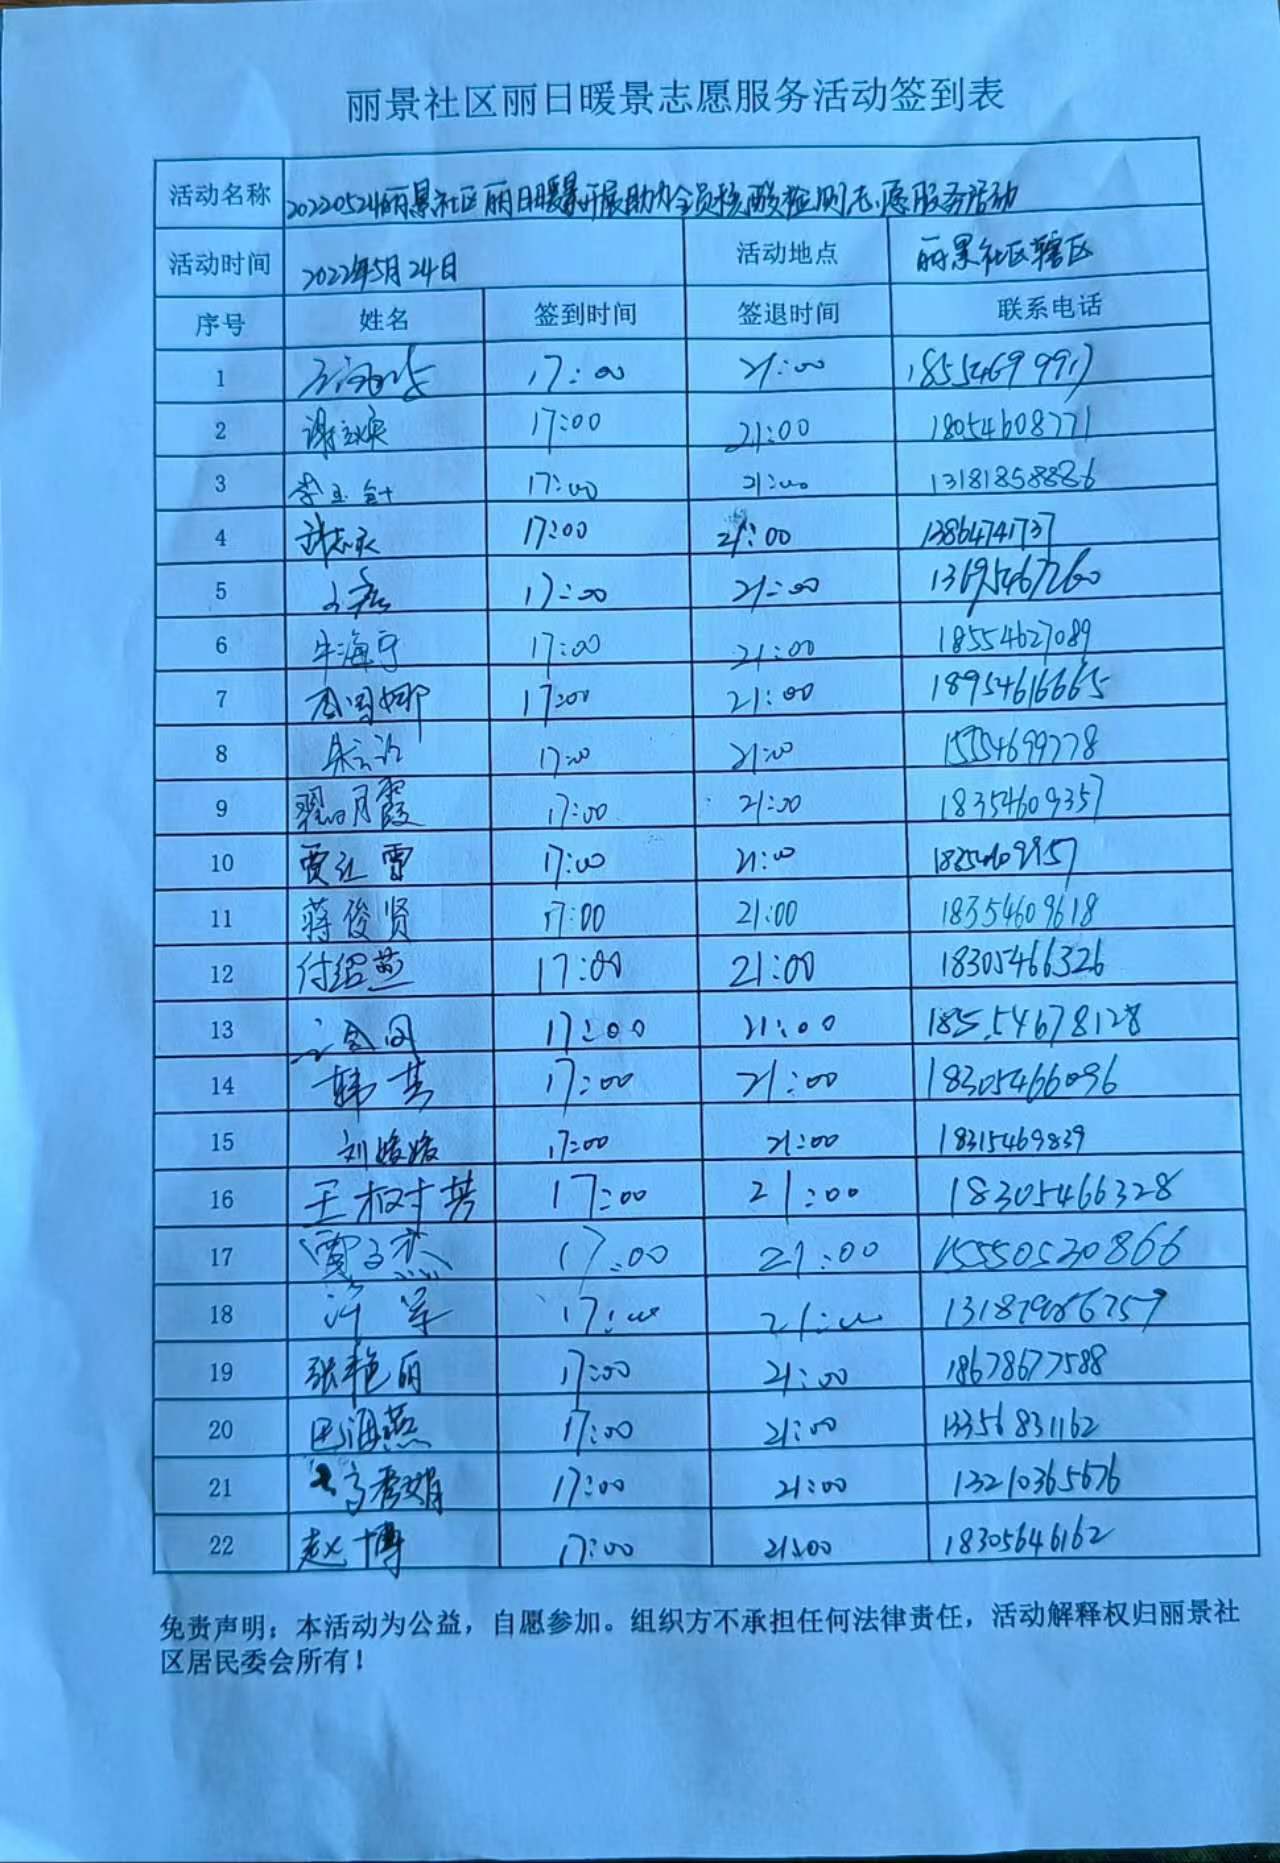 丽景社区丽日暖景志愿服务活动签到表
活动名称 20220524丽景社区丽日暖景开展助力全员核酸检测志愿服务活动
活动时间 2022年5月24日 活动地点 丽景社区辖区
序号 姓名 签到时间 签退时间 联系电话
1 17:00 21:00 18554699917
2 17:00 21:00 18054608771
3 17:00 21:00 13181858886
4 17:00 21:00 13864741737
5 17:00 21:00 13695467260
6 牛海宁 17:00 21:00 18554627089
7 17:00 21:00 18954616665
8 17:00 21:00 15554699778
9 翟明霞 17:00 21:00 18354609357
10 贾红雷 17:00 21:00
11 蒋俊贤 17:00 21:00 18354609618
12 付绍燕 17:00 21:00 18305466326
13 17:00 21:00 18554678128
14 韩芸 17:00 21:00 18305466096
15 刘媛媛 17:00 21:00 18315469839
16 王树芳 17:00 21:00 18305466328
17 贾子杰 17:00 21:00 15550530866
18 许军 17:00 21:00
19 张艳丽 17:00 21:00 18678677588
20 巴海燕 17:00 21:00 13356831162
21 高秀娟 17:00 21:00 13210365676
22 赵博 17:00 21:00 18305646162
免责声明：本活动为公益，自愿参加。组织方不承担任何法律责任，活动解释权归丽景社
区居民委会所有！